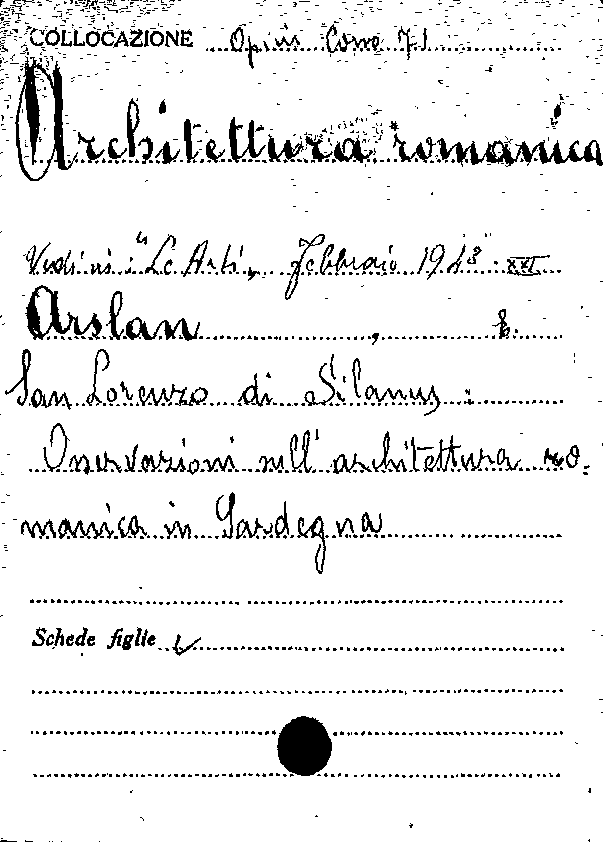 COLLOCAZIONE Opus Como 71
Architettura romanica
Vedi in: "Le Arti„ Febbraio 1943 - XXI
Arslan, E.
San Lorenzo di Silanus:
Osservazioni sull'architettura ro-
manica in Sardegna
Schede figlie 1